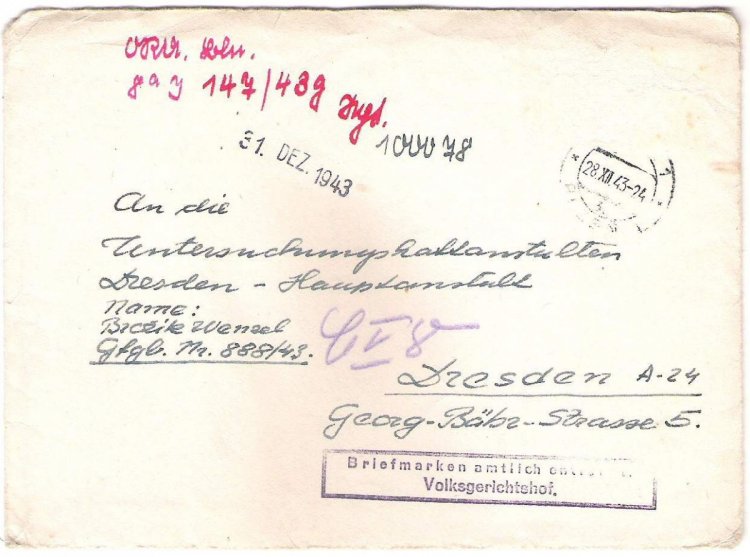 ORA. Bln.
9a J 147/43g Hgs.
100078
31. DEZ. 1943
28.XII.43-24
1
3
An die
Untersuchungshaftanstalten
Dresden - Hauptanstalt
Name:
Brozik Wenzel
Gfgb. Nr. 888/43.
Dresden A-24
Georg-Bähr-Strasse 5.
Briefmarken amtlich
Volksgerichtshof.